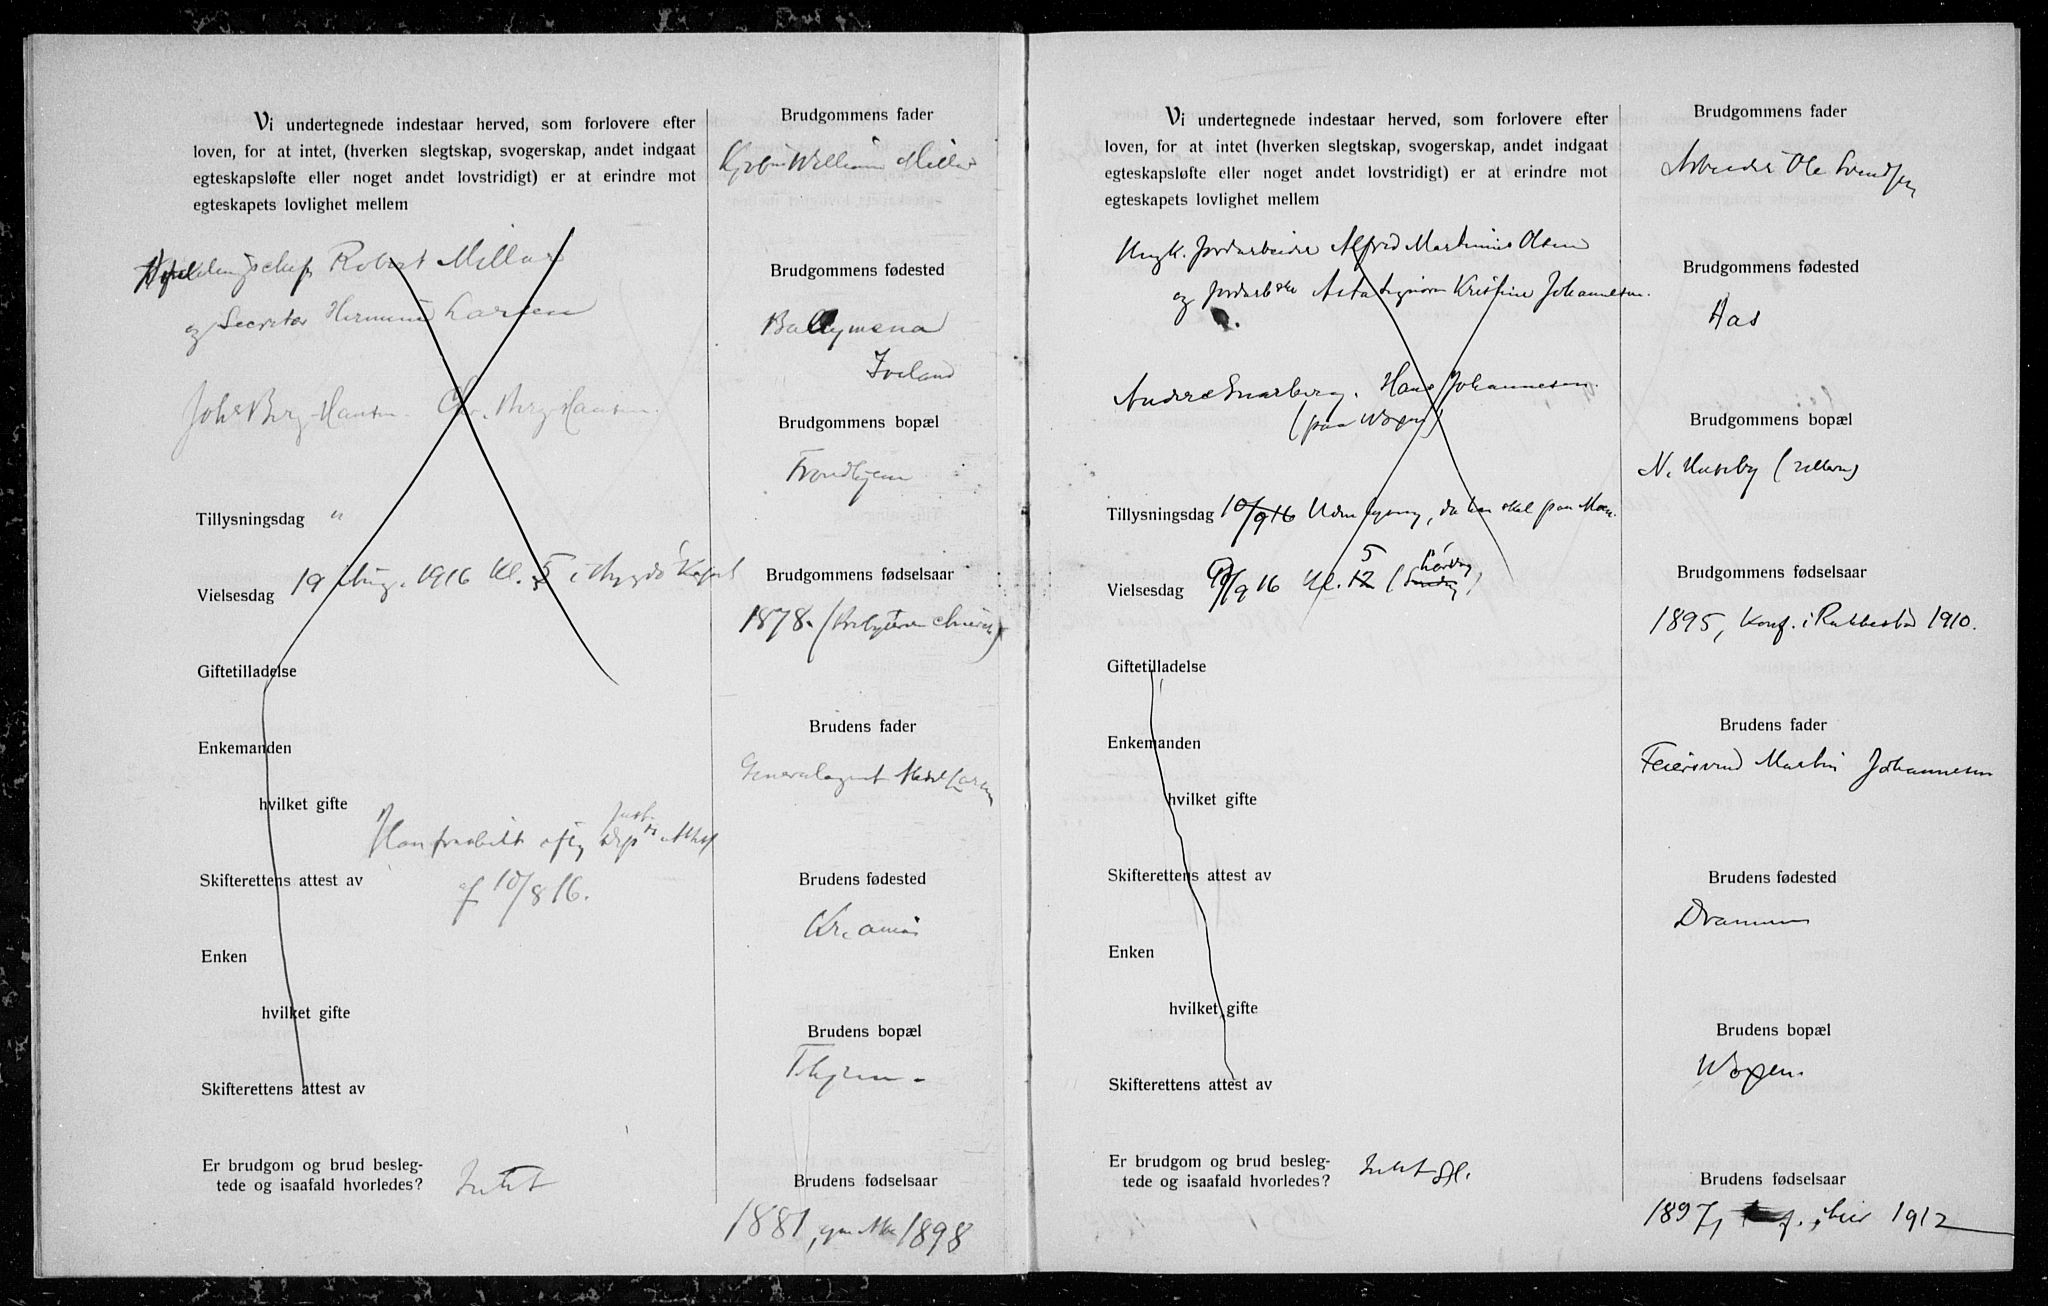 Vi undertegnede indestaar herved, som forlovere efter
loven, for at intet, (hverken slegtskap, svogerskap, andet indgaat
egteskapsløfte eller noget andet lovstridigt) er at erindre mot
egteskapets lovlighet mellem
Robert Millar
og Secretær Hermine Larsen
Johs Berg-Hansen. Chr. Berg-Hansen.
Tillysningsdag "
Vielsesdag 19 Aug. 1916 Kl. 5 i Bygdø
Giftetilladelse
Enkemanden
hvilket gifte
Skifterettens attest av
af 10/8 16.
Enken
hvilket gifte
Skifterettens attest av
Er brudgom og brud besleg-
tede og isaafald hvorledes? Intet
Brudgommens fader
William Millar
Brudgommens fødested
Ballymena
Irland
Brudgommens bopæl
Trondhjem
Brudgommens fødselsaar
1878. (
Brudens fader
Generalagent Larsen
Brudens fødested
Kr.ania
Brudens bopæl
Thjem.
Brudens fødselsaar
1881, 1898
Vi undertegnede indestaar herved, som forlovere efter
loven, for at intet (hverken slegtskap, svogerskap, andet indgaat
egteskapsløfte eller noget andet lovstridigt) er at erindre mot
egteskapets lovlighet mellem
Ungk. Jordarbeider Alfred Martinius Olsen
og Asta Signora Kristine Johannesen.
Hans Johannesen.
(paa Woxen)
Tillysningsdag 10/9 16 Uden lysning, da han skal paa Moen.
Vielsesdag 9/9 16 Kl. 12 5 (Søndag Lørdag)
Giftetilladelse
Enkemanden
hvilket gifte
Skifterettens attest av
Enken
hvilket gifte
Skifterettens attest av
Er brudgom og brud besleg-
tede og isaafald hvorledes? Intet
Brudgommens fader
Arbeider Ole Svendsen
Brudgommens fødested
Aas
Brudgommens bopæl
N. Huseby (
Brudgommens fødselsaar
1895, konf. i Rakkestad 1910.
Brudens fader
Feiersvend Martin Johannesen
Brudens fødested
Drammen
Brudens bopæl
Woxen.
Brudens fødselsaar
1897, her 1912